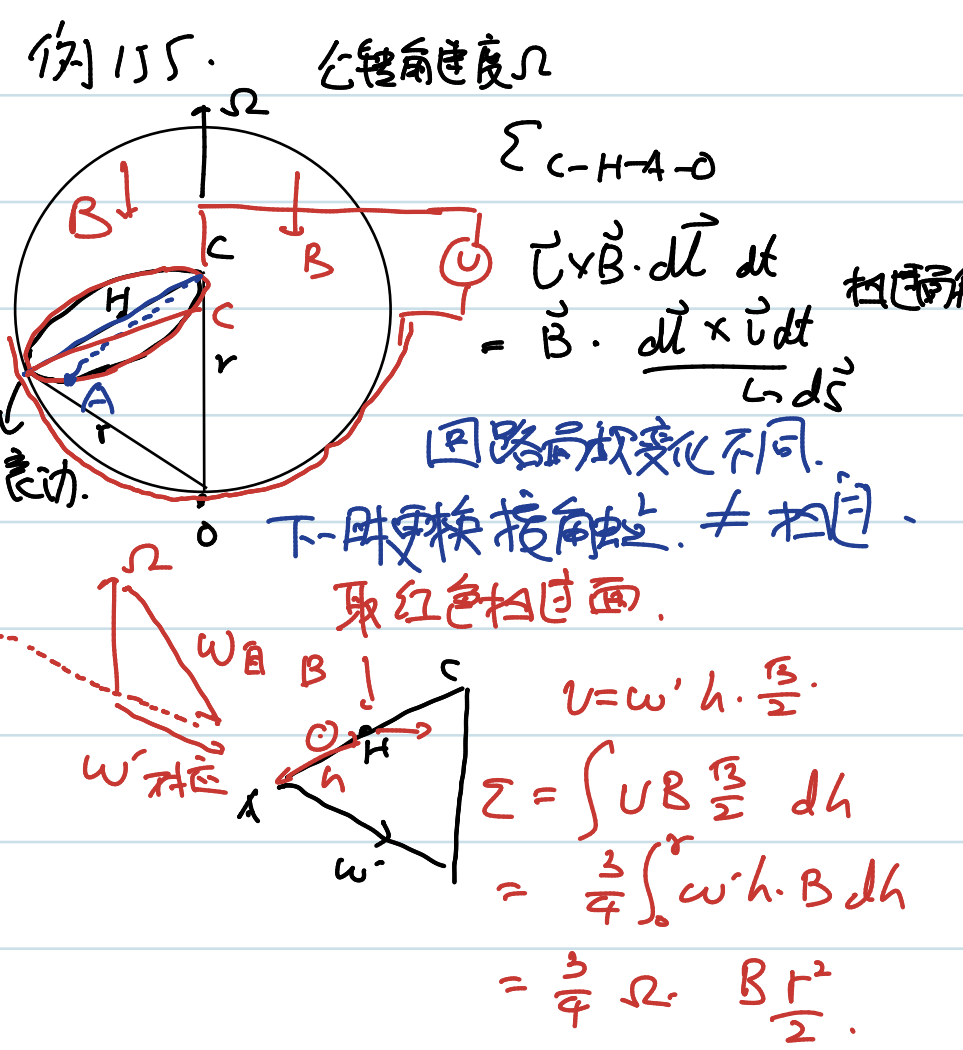 例15.
公转角速度Ω
Ω
B
B
C
H
C
U
r
A
r
O
ε C-H-A-O
v⃗×B⃗·dl⃗ dt
= B⃗·dl⃗×v⃗dt
↳dS⃗
回路局放变化不同.
下一时更换接触点.≠扫过.
取红色扫过面.
Ω
ω自
ω'对应
B
C
H
h
A
ω'
v=ω'h·√3/2.
ε=∫vB √3/2 dh
= 3/4 ∫₀ʳ ω'h·B dh
= 3/4 Ω· B r²/2.